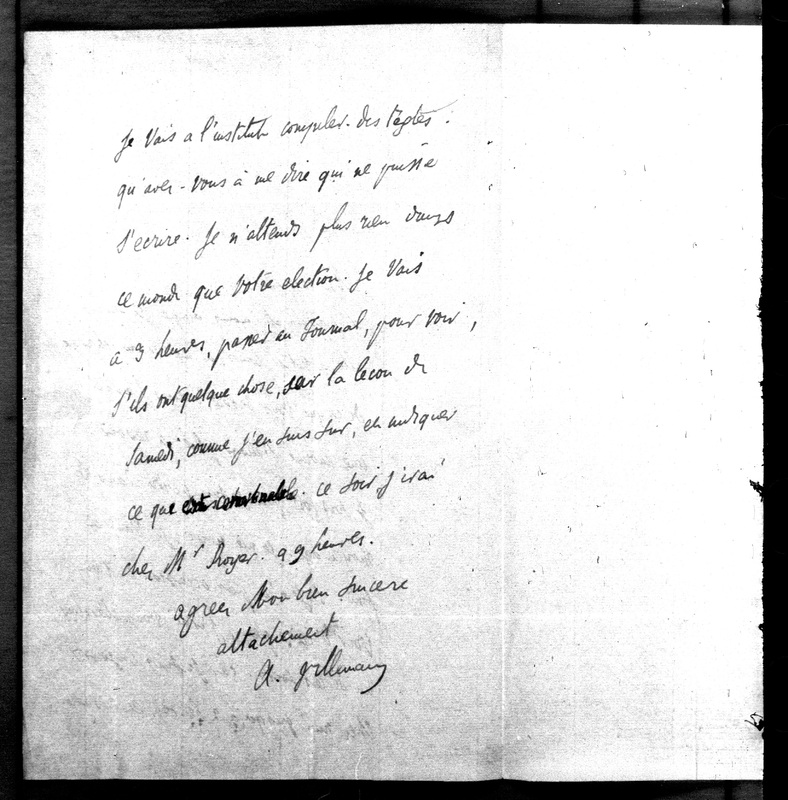 Je Vais a l'institut compiler des Textes.
qu'avez-vous à me dire qui ne puisse
s'ecrire. Je n'attends plus rien dans
ce monde que votre election. Je Vais
a 3 heures, passer au Journal, pour voir,
s'ils ont quelque chose, sur la lecon de
Samedi, comme j'en suis sur, et indiquer
ce que . ce soir j'irai
chez Mr Royer. a 9 heures.
agreez Mon bien sincere
attachement
a. Villemain